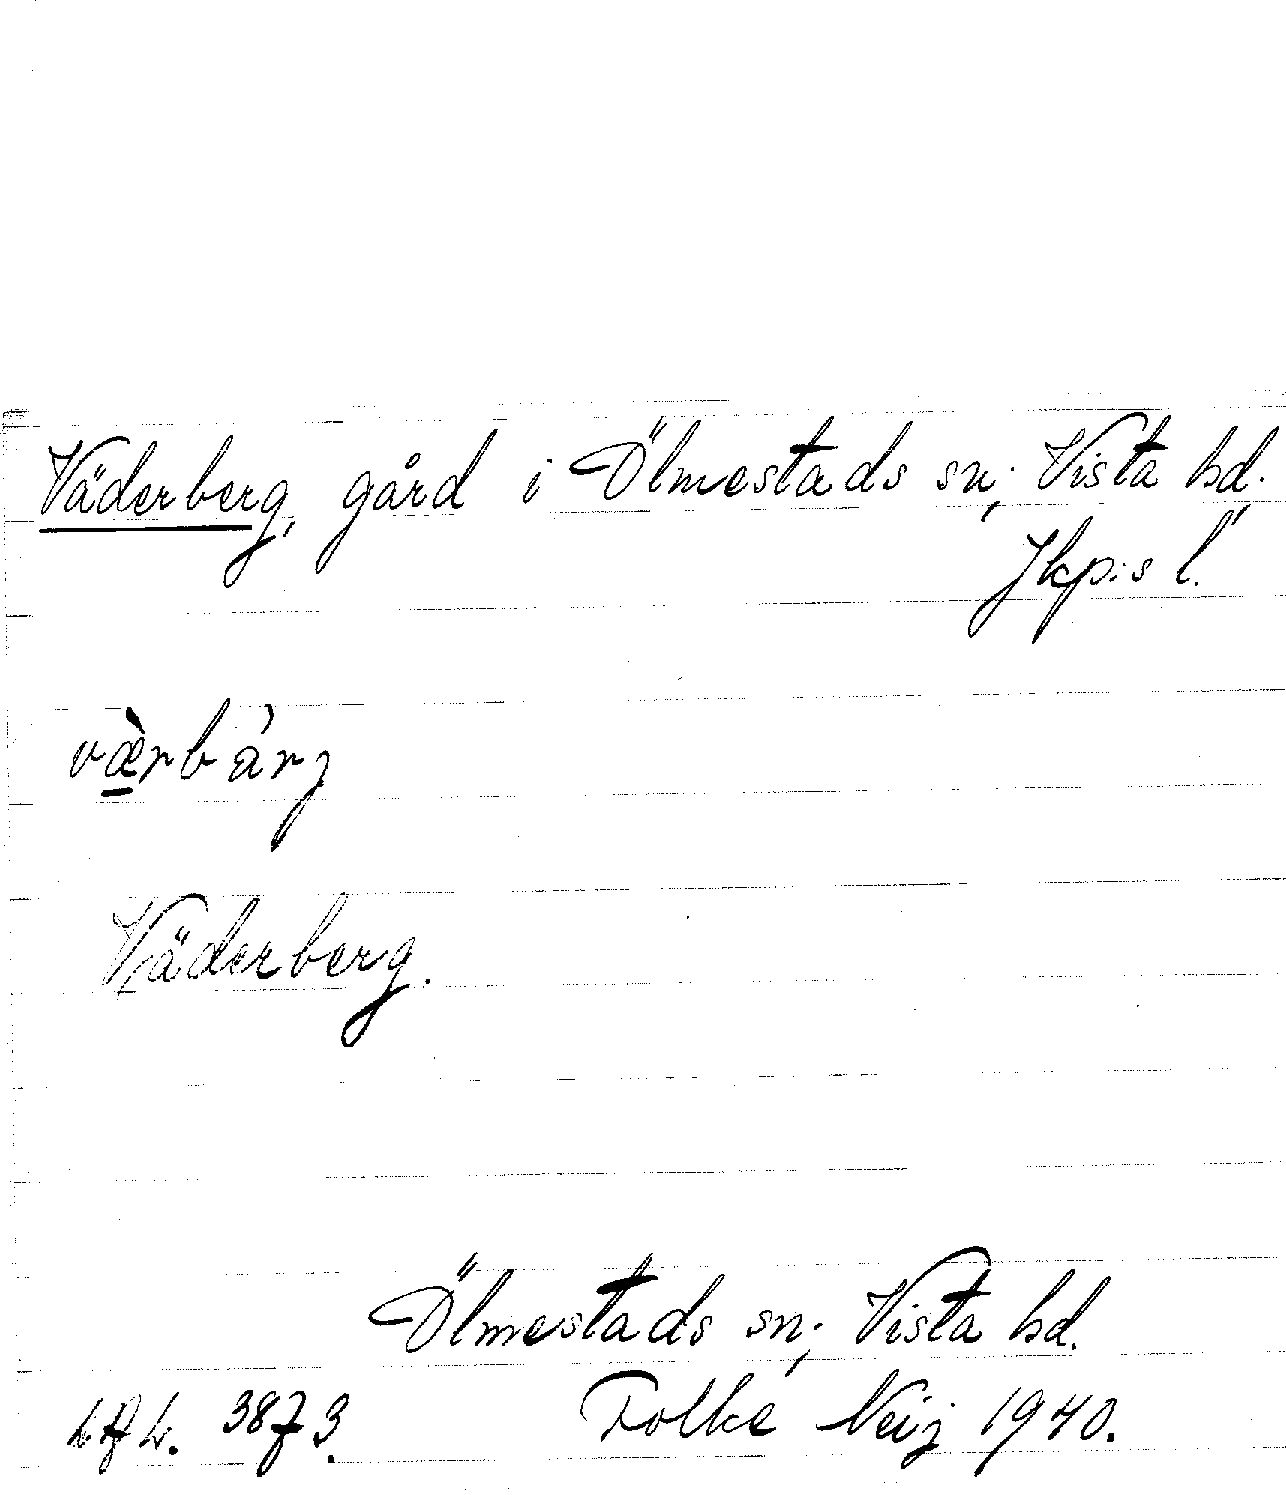 Väderberg, gård i Ölmestads sn; Vista hd.
Jkp:s l.
værbárj
Väderberg.
Ölmestads sn; Vista hd.
3873. Folke Neij 1940.